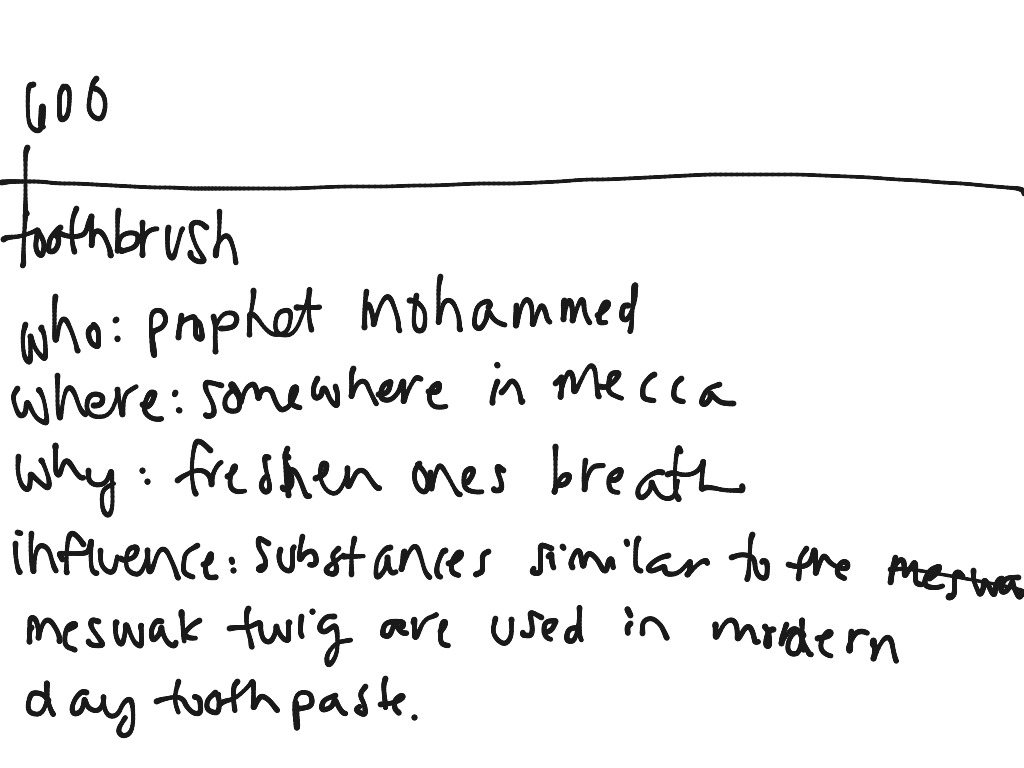 600
toothbrush
who: prophet Mohammed
where: somewhere in Mecca
why: freshen ones breath
influence: substances similar to the meswa
meswak twig are used in modern
day toothpaste.